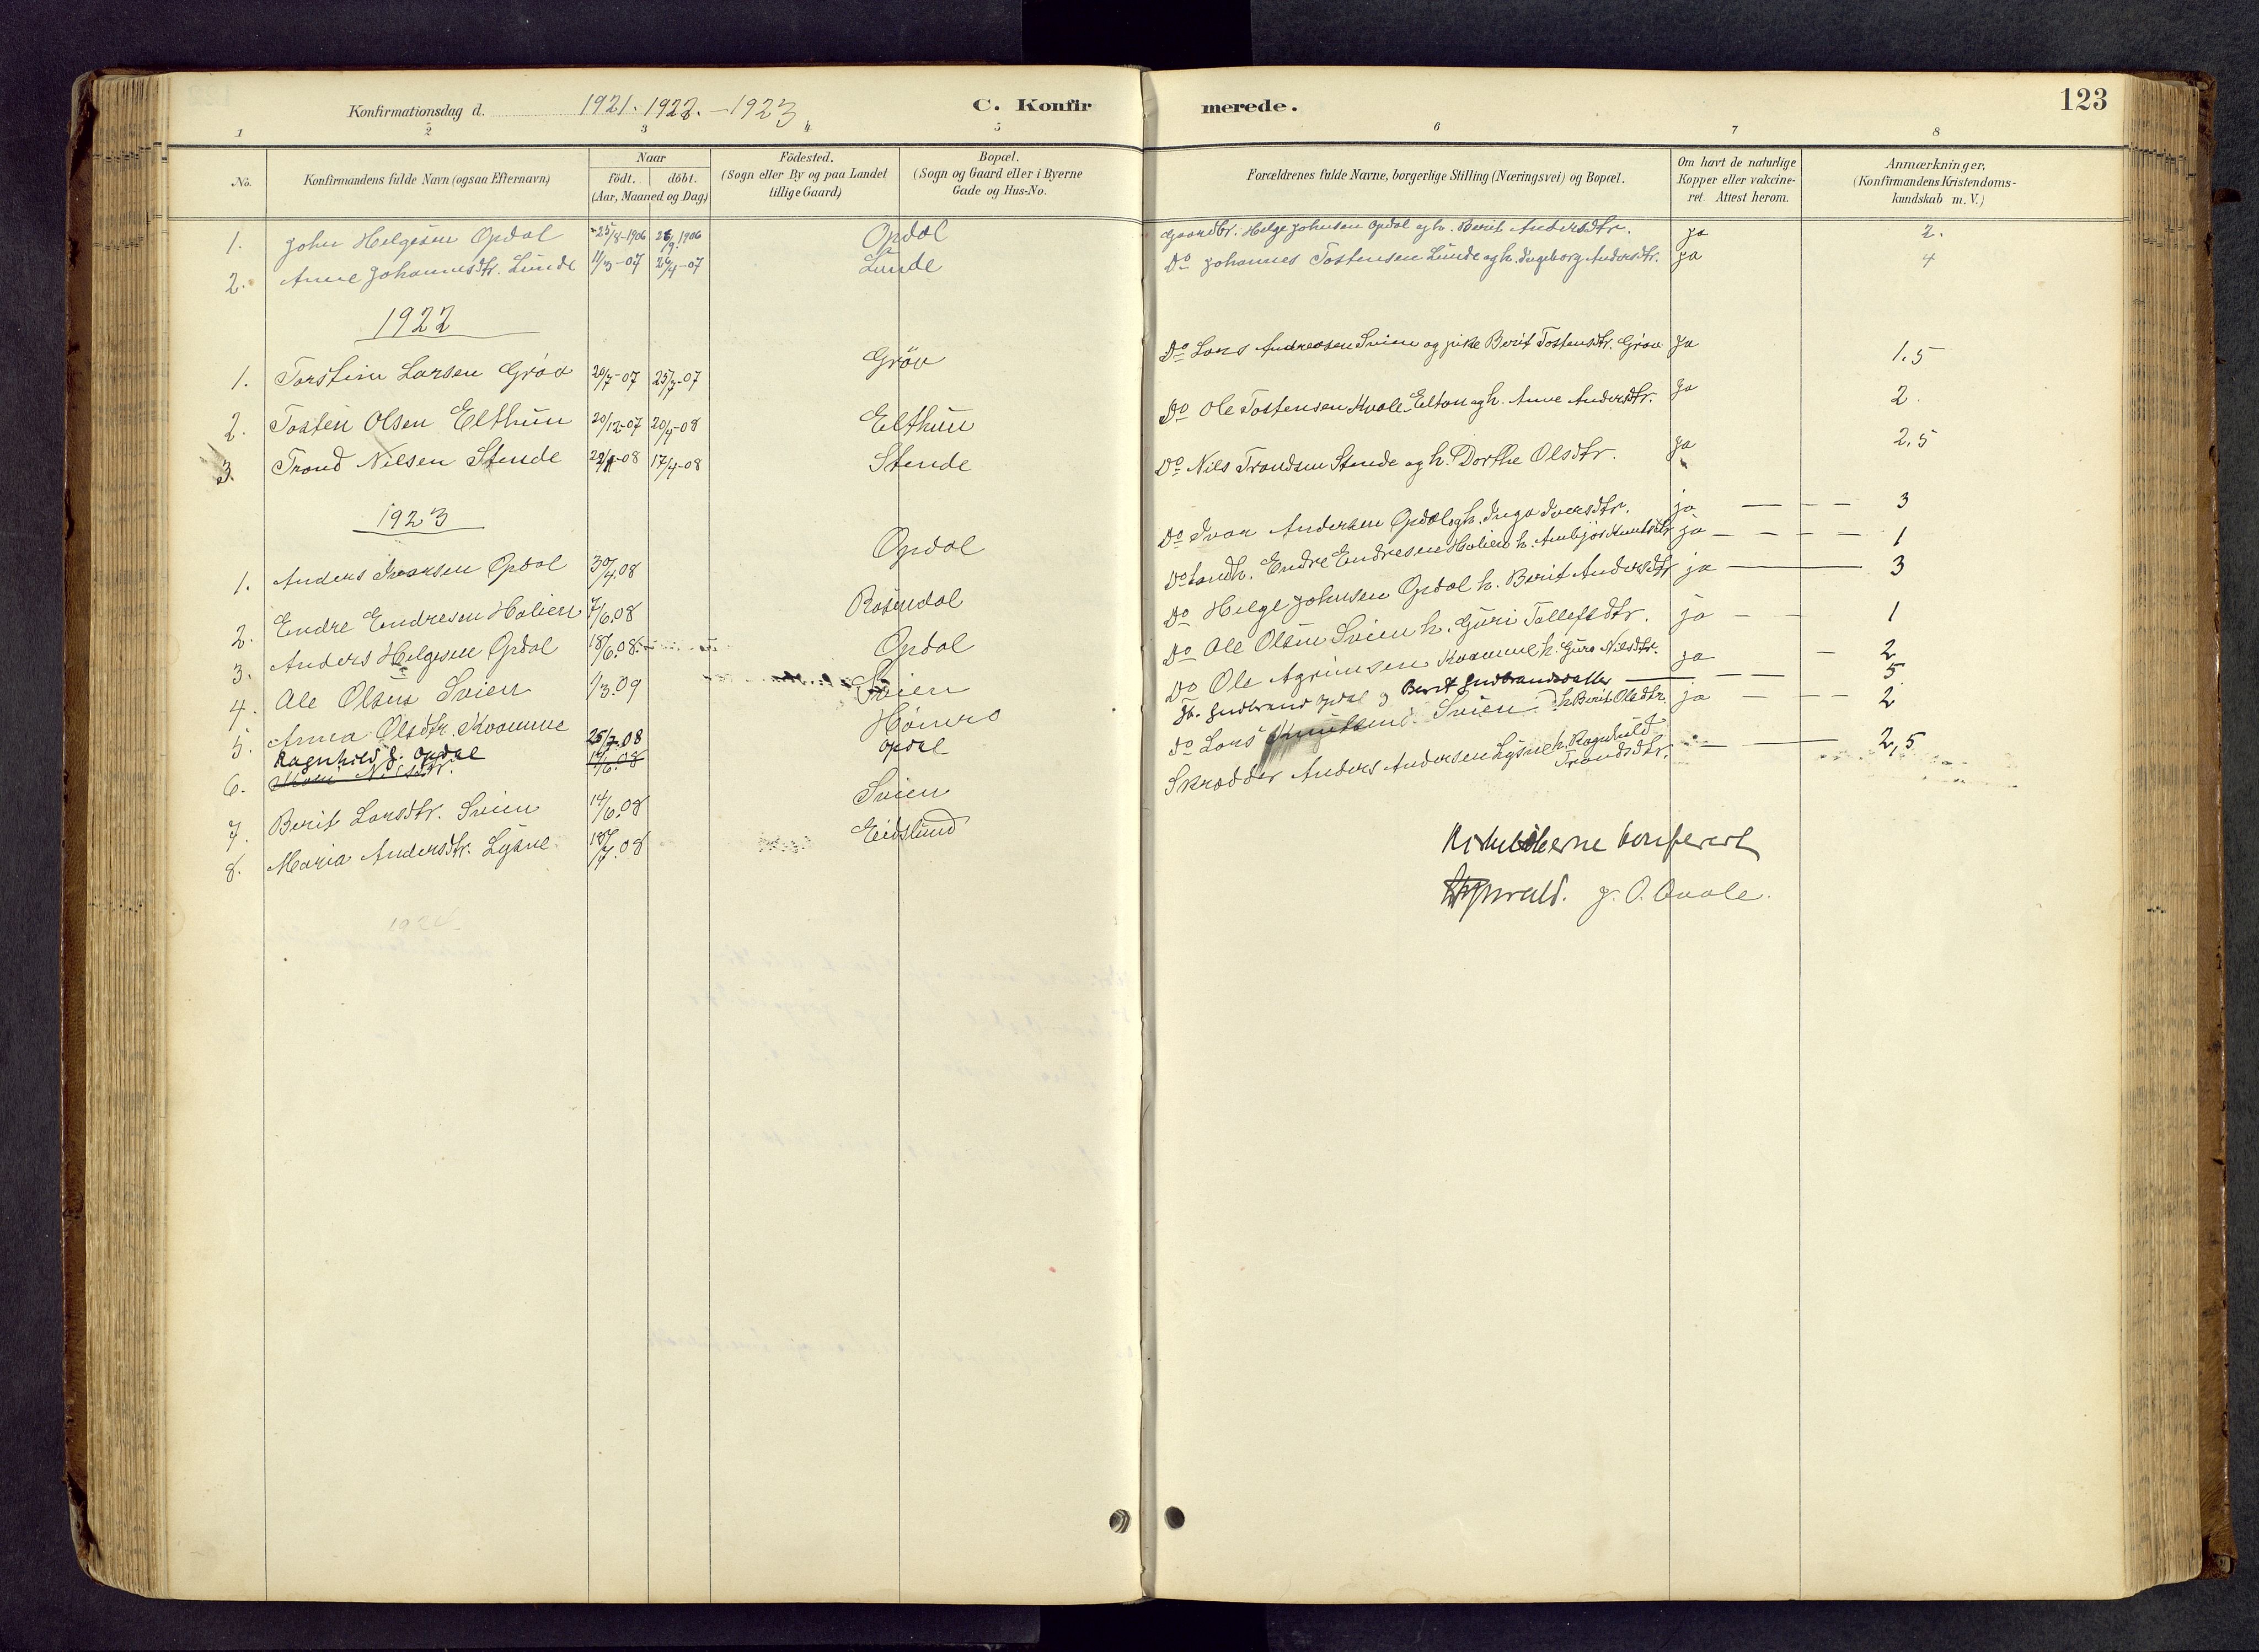 Konfirmationsdag d. 1921. 1922. - 1923
C. Konfirmerede.
123
1 2 3 4 5 6 7 8
No.
Konfirmandens fulde Navn (ogsaa Efternavn)
Naar
Födt. döbt.
(Aar, Maaned og Dag)
Födested.
(Sogn eller By og paa Landet
tillige Gaard)
Bopæl.
(Sogn og Gaard eller i Byerne
Gade og Hus-No.
Forældrenes fulde Navne, borgerlige Stilling (Næringsvei) og Bopæl.
Om havt de naturlige
Kopper eller vakcine-
ret. Attest herom.
Anmærkninger,
(Konfirmandens Kristendoms-
kundskab m. V.)
1. John Helgesen Opdal 25/8-1906 26/9.1906 Opdal Gaardbr. Helge Johnsen Opdal og h. Berit Andersdtr. ja 2.
2. Anne Johannesdtr. Lunde 11/3-07 26/4-07 Lunde Do Johannes Tostensen Lunde og h. Ingeborg Andersdtr. ja 4
1922
1. Torstein Larsen Gröv 20/7-07 25/7-07 Gröv Do Lars Andreasen Svien og pike Berit Tostensdtr. Gröv ja 1,5
2. Tosten Olsen Elthun 20/12-07 20/4-08 Elthun Do Ole Tostensen Kvale-Eltun og h. Anne Andersdtr. ja 2.
3. Trond Nilsen Stende 22/1-08 17/4-08 Stende Do Nils Trondsen Stende og h. Dorthe Olsdtr. ja 2,5
1923
1. Anders Ivarsen Opdal 30/4.08 Opdal Do Ivar Andersen Opdal og h. Inga Iversdtr. ja - - - 3
2. Endre Endresen Holien 7/6.08 Rosendal Do Landh. Endre Endresen Holien h. Ambjør Knutsdtr ja - - - - 1
3. Anders Helgesen Opdal 18/6.08. Opdal Do Helge Johnsen Opdal h. Berit Andersdtr ja - 3
4. Ole Olsen Svien 1/3.09 Svien Do Ole Olsen Svien h. Guri Tollefsdtr. ja - - 1
5. Anna Olsdtr. Kvamme Hömro Do Ole Agrimsen Kvamme h. Guro Nilsdtr. ja - 2
6. Ragnhild G. Opdal 25/7.08 Opdal Gudbrand Opdal og Berit - - - 5
7. Berit Larsdtr. Svien 14/6.08 Svien Do Lars Knutsen Svien h. Berit Olsdtr. ja - - 2
8. Maria Andersdtr. Lysne 18/7.08 Eidslund Skrædder Anders Andersen Lysne h. Ragnhild Trondsdtr. - 2,5
konferert
J. O. Qvale.